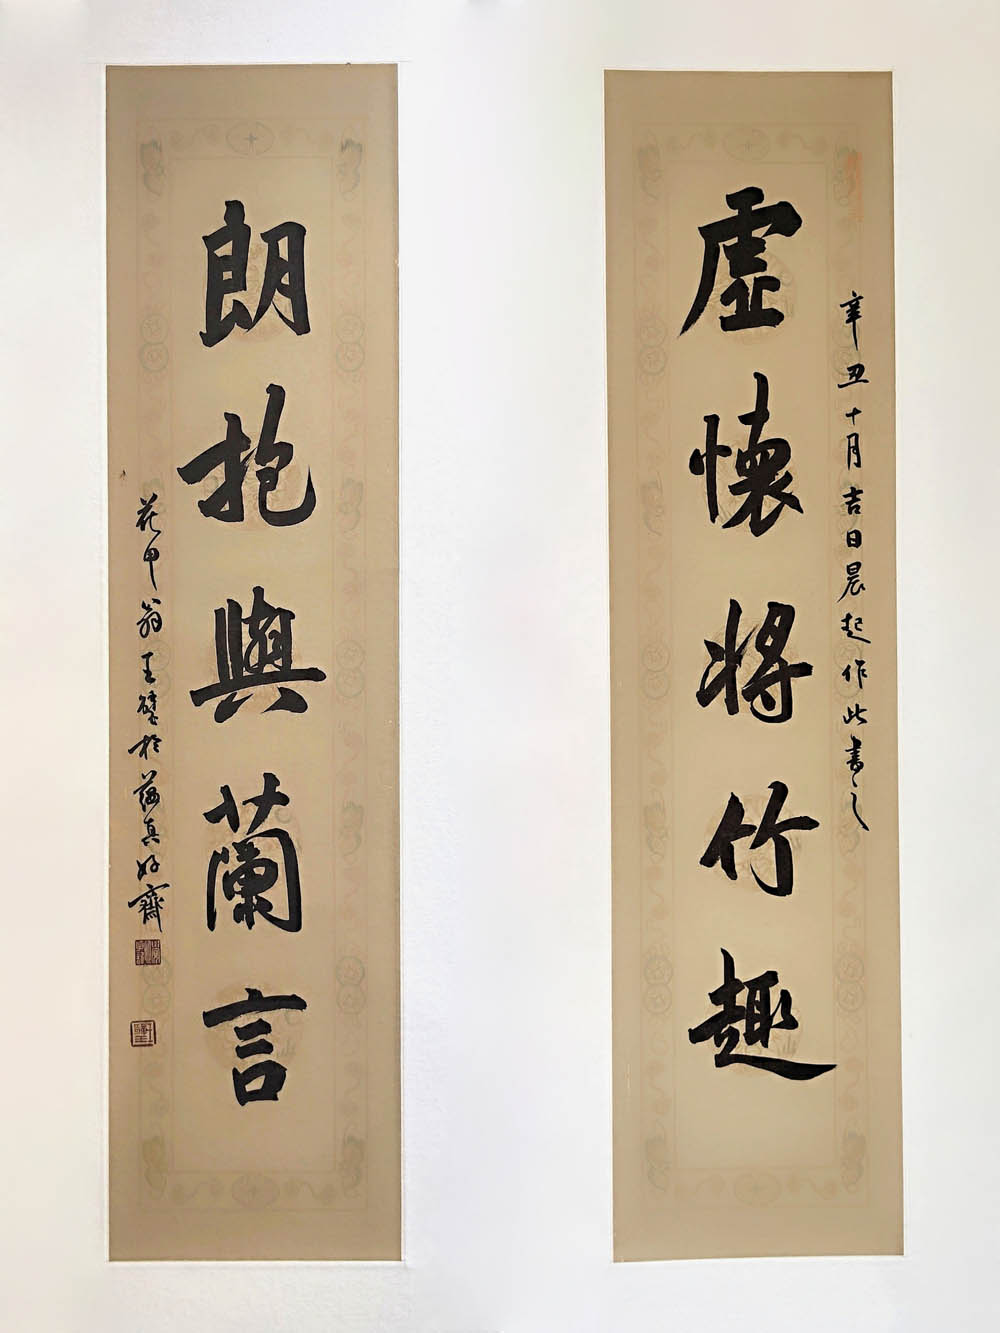 虛懷將竹趣
辛丑十月吉日晨起作此書之
朗抱與蘭言
花甲翁王壁於蕴真好齋